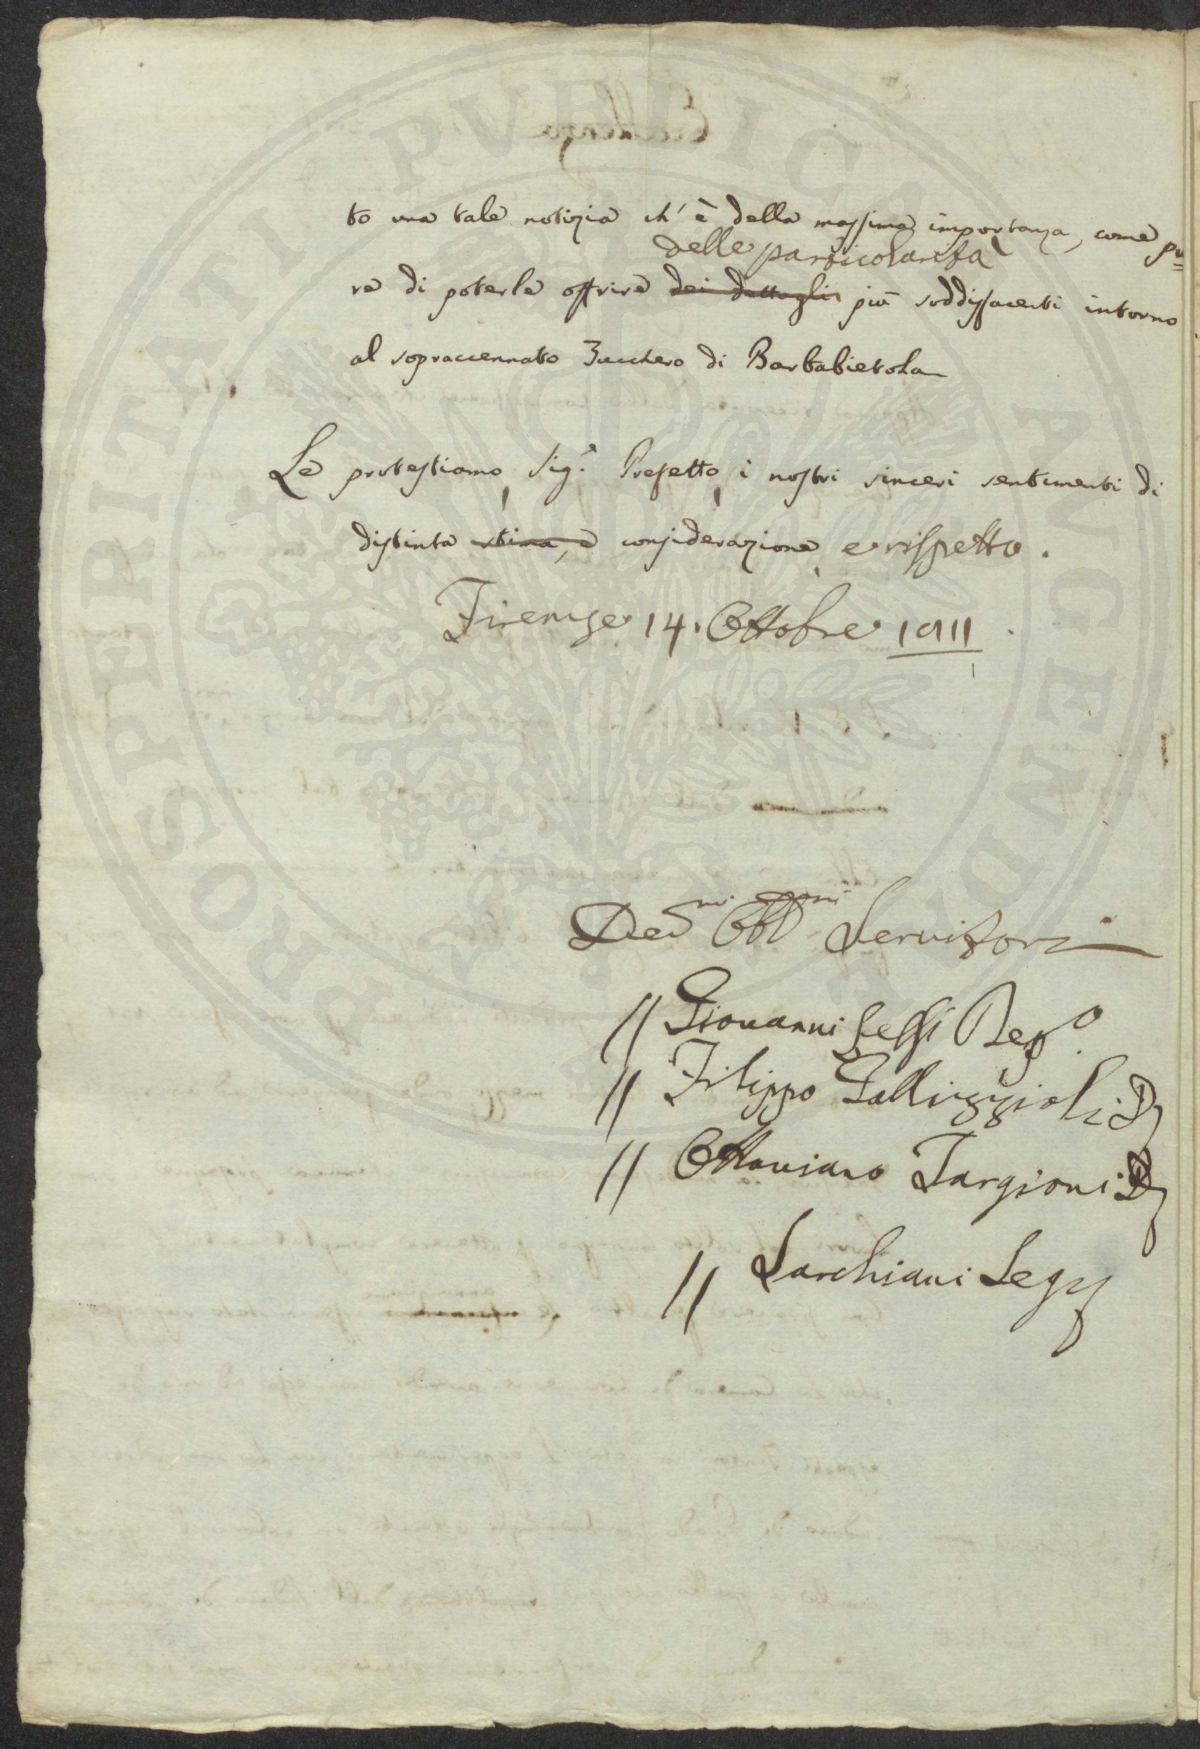 PROSPERITATI PUBLICAE AUGENDAE
to una tale notizia ch'è della massima importanza, come pu=
delle particolarità
re di poterle offrire dei dettagli più soddisfacenti intorno
al sopraccennato Zucchero di Barbabietola
Le protestiamo, Sig.r Prefetto, i nostri sinceri sentimenti di
distinta stima, e considerazione, e rispetto.
Firenze 14. Ottobre 1811.
Dev.mi Obb.mi Servitori
// Giovanni Lessi
// Filippo Gallizzioli
// Ottaviano Targioni
// Sarchiani Seg